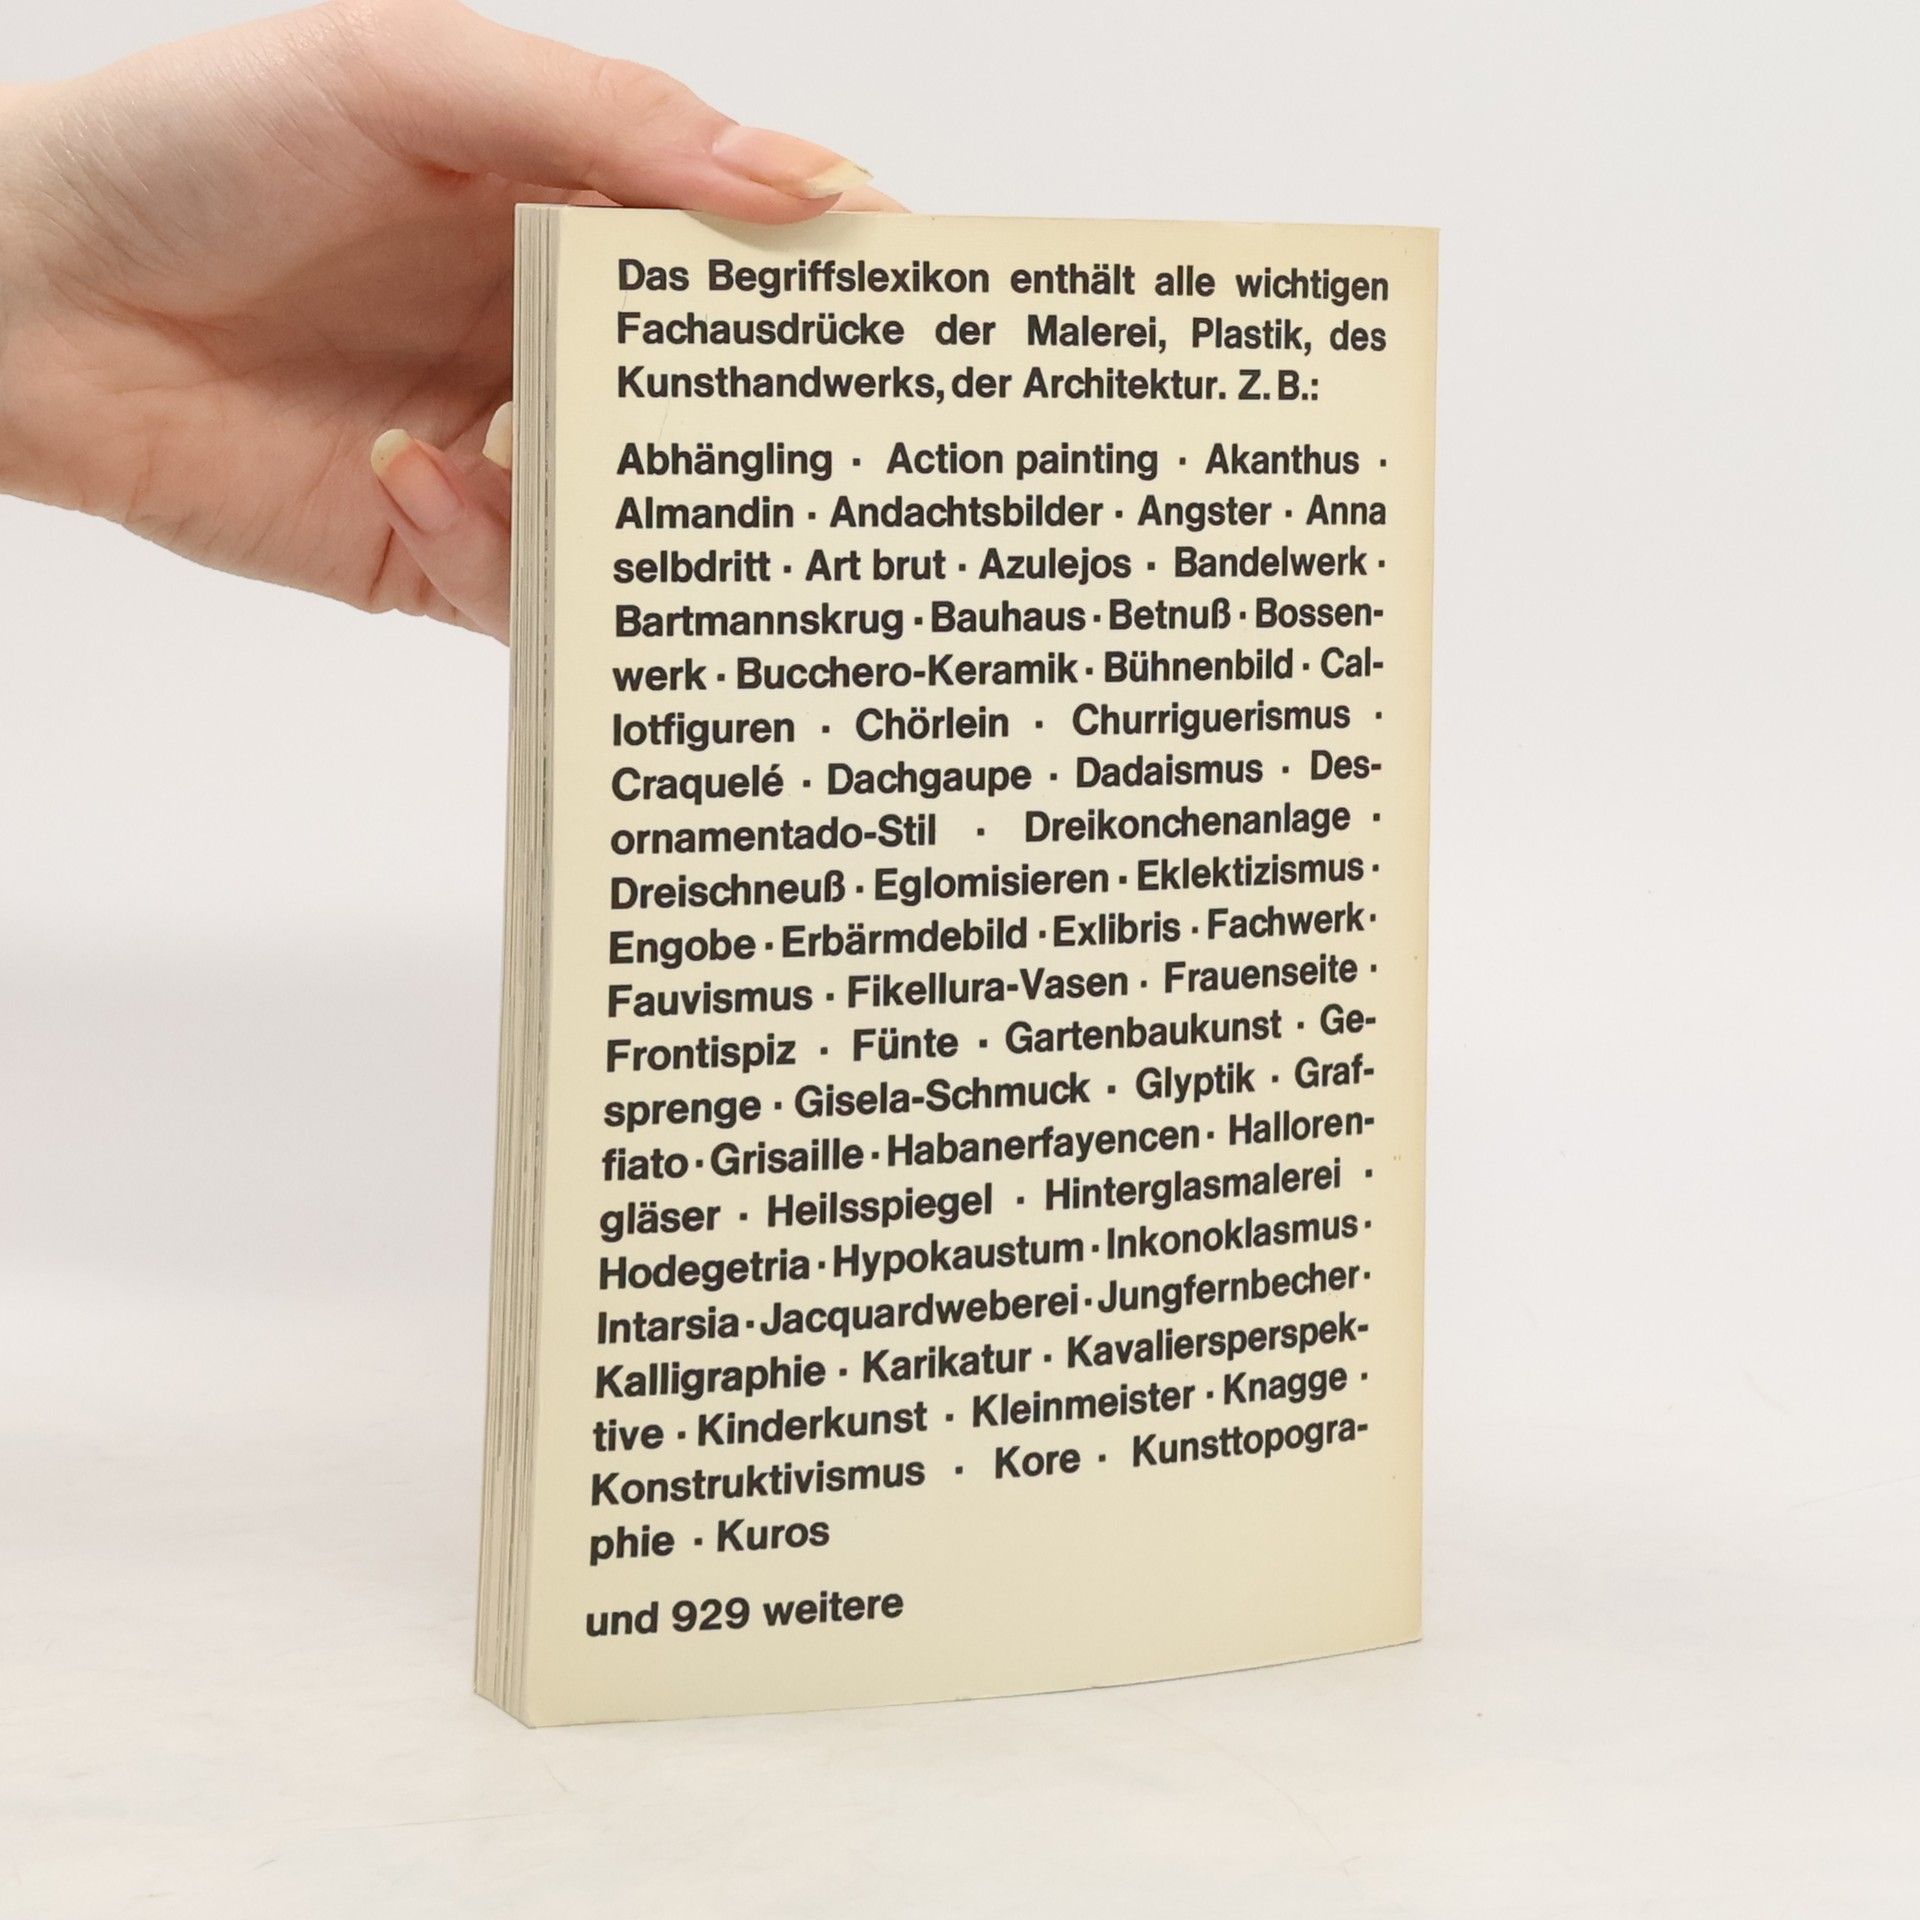 Das Begriffslexikon enthält alle wichtigen
Fachausdrücke der Malerei, Plastik, des
Kunsthandwerks, der Architektur. Z. B.:
Abhängling · Action painting · Akanthus ·
Almandin · Andachtsbilder · Angster · Anna
selbdritt · Art brut · Azulejos · Bandelwerk ·
Bartmannskrug · Bauhaus · Betnuß · Bossen-
werk · Bucchero-Keramik · Bühnenbild · Cal-
lotfiguren · Chörlein · Churriguerismus ·
Craquelé · Dachgaupe · Dadaismus · Des-
ornamentado-Stil · Dreikonchenanlage ·
Dreischneuß · Eglomisieren · Eklektizismus ·
Engobe · Erbärmdebild · Exlibris · Fachwerk ·
Fauvismus · Fikellura-Vasen · Frauenseite ·
Frontispiz · Fünte · Gartenbaukunst · Ge-
sprenge · Gisela-Schmuck · Glyptik · Graf-
fiato · Grisaille · Habanerfayencen · Halloren-
gläser · Heilsspiegel · Hinterglasmalerei ·
Hodegetria · Hypokaustum · Inkonoklasmus ·
Intarsia · Jacquardweberei · Jungfernbecher ·
Kalligraphie · Karikatur · Kavaliersperspek-
tive · Kinderkunst · Kleinmeister · Knagge ·
Konstruktivismus · Kore · Kunsttopogra-
phie · Kuros
und 929 weitere